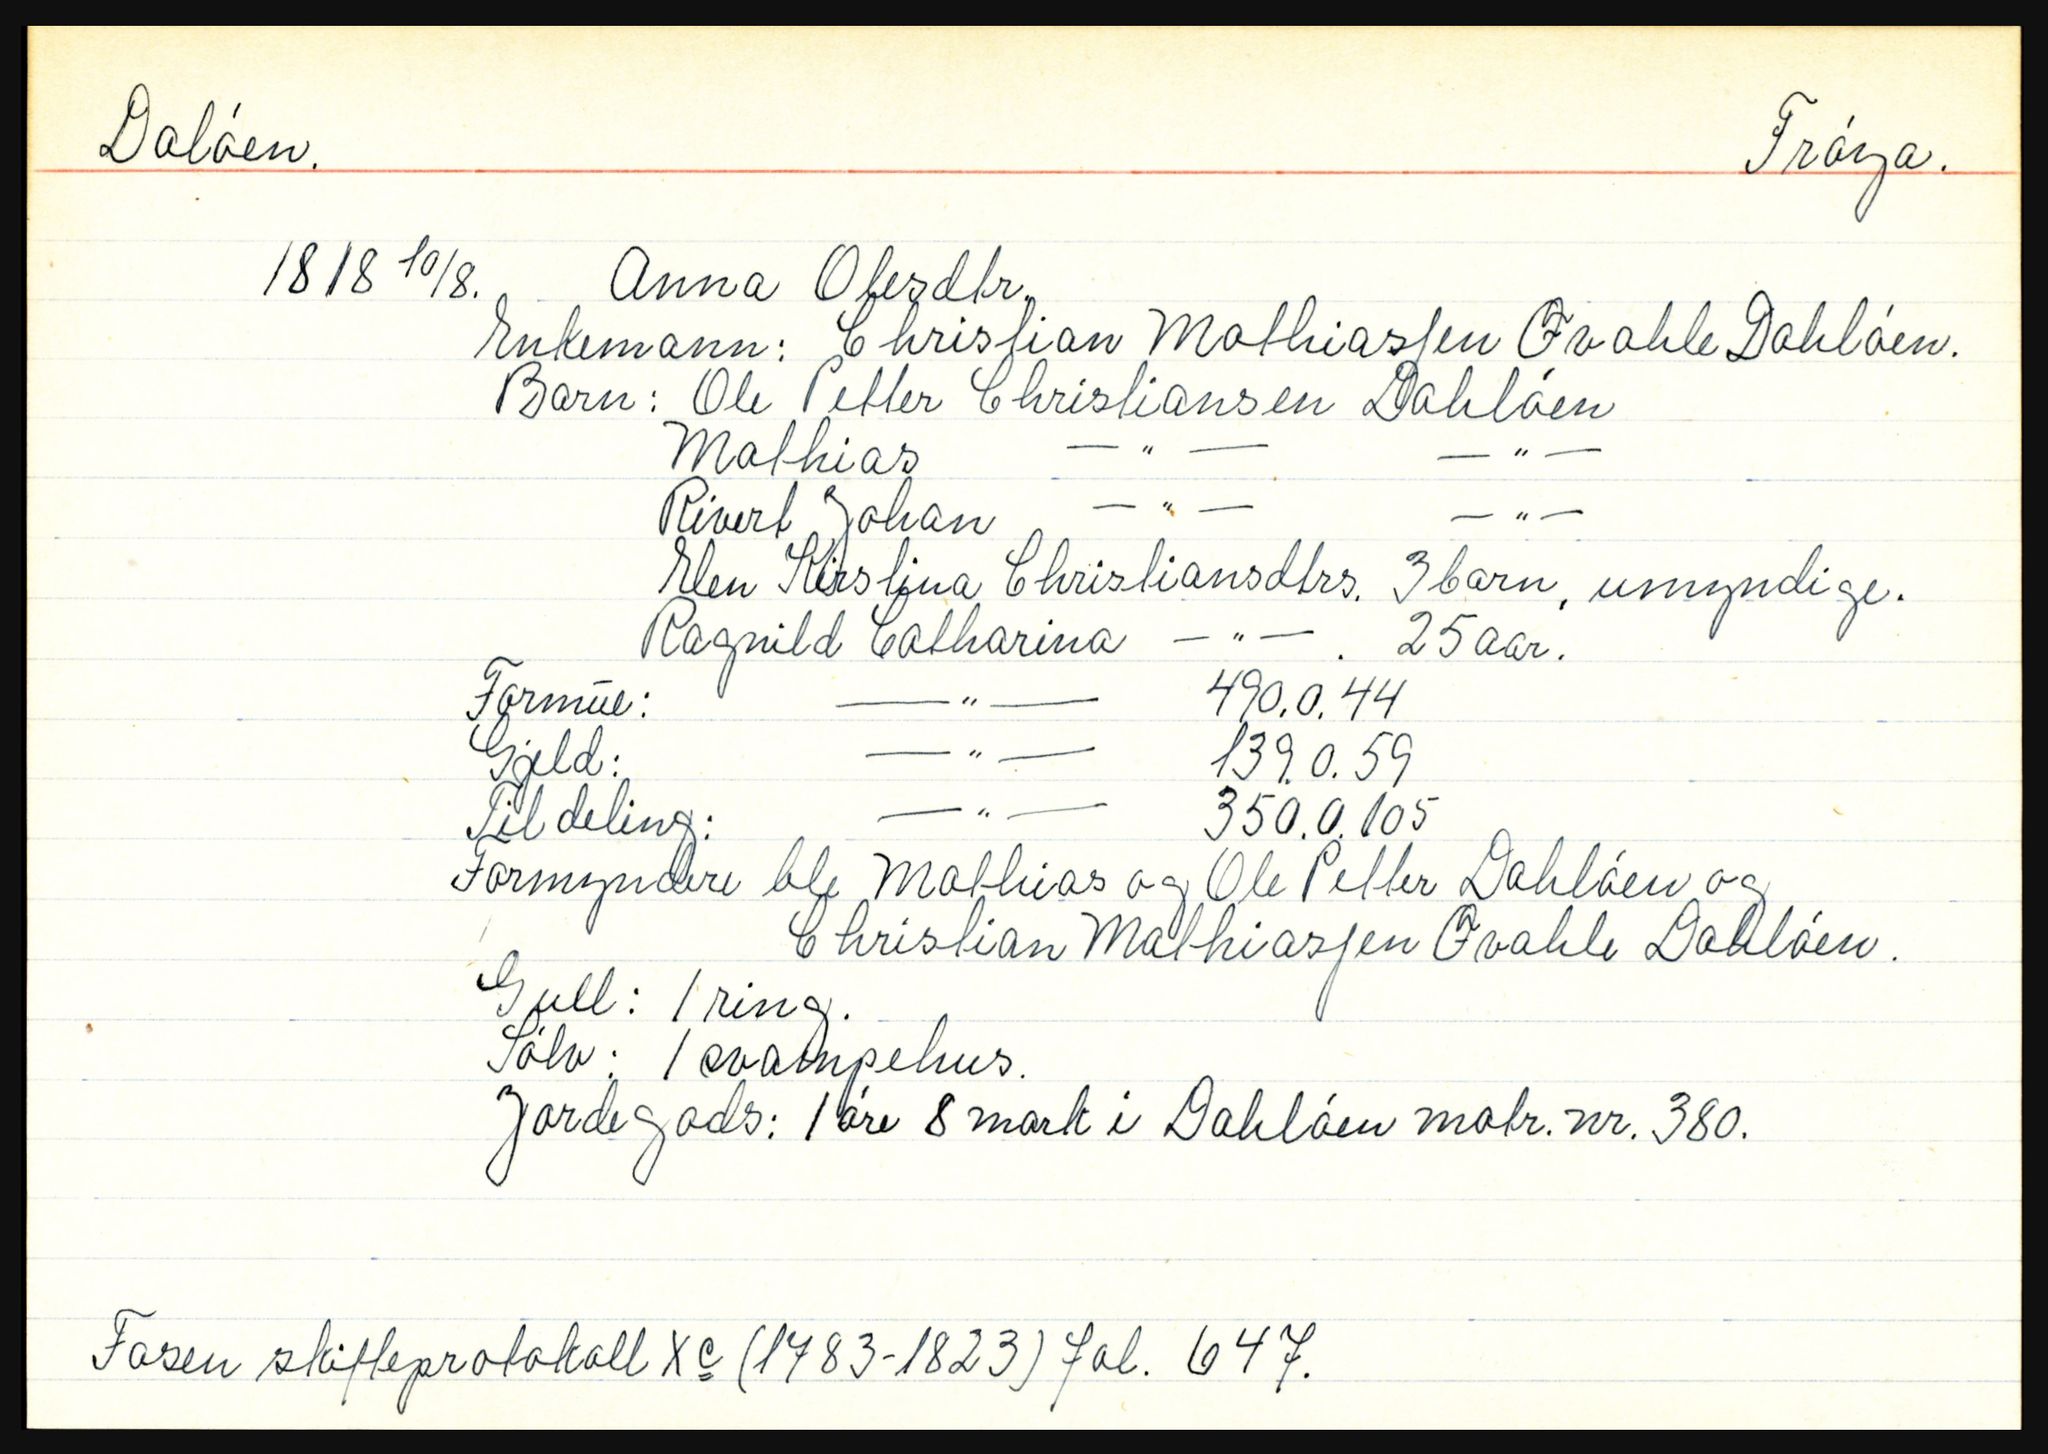 Daløen. Frøya.
1818 10/8. Anna Olesdtr.
Enkemann: Christian Mathiassen Qvahle Dahløen.
Barn: Ole Petter Christiansen Dahløen
Mathias —"— —"—
Sivert Johan —"— —"—
Elen Kirstina Christiansdtrs. 3 barn, umyndige.
Ragnild Catharina —"—. 25 aar.
Formue: —"— 490.0.44
Gjeld: —"— 139.0.59
Til deling: —"— 350.0.105
Formyndere ble Mathias og Ole Petter Dahløen og
Christian Mathiassen Qvahle Dahløen.
Gull: 1 ring.
Sølv: 1 svampehus.
Jordegods: 1 øre 8 mark i Dahløen matr. nr. 380.
Fosen skifteprotokoll Xc (1783-1823) fol. 647.